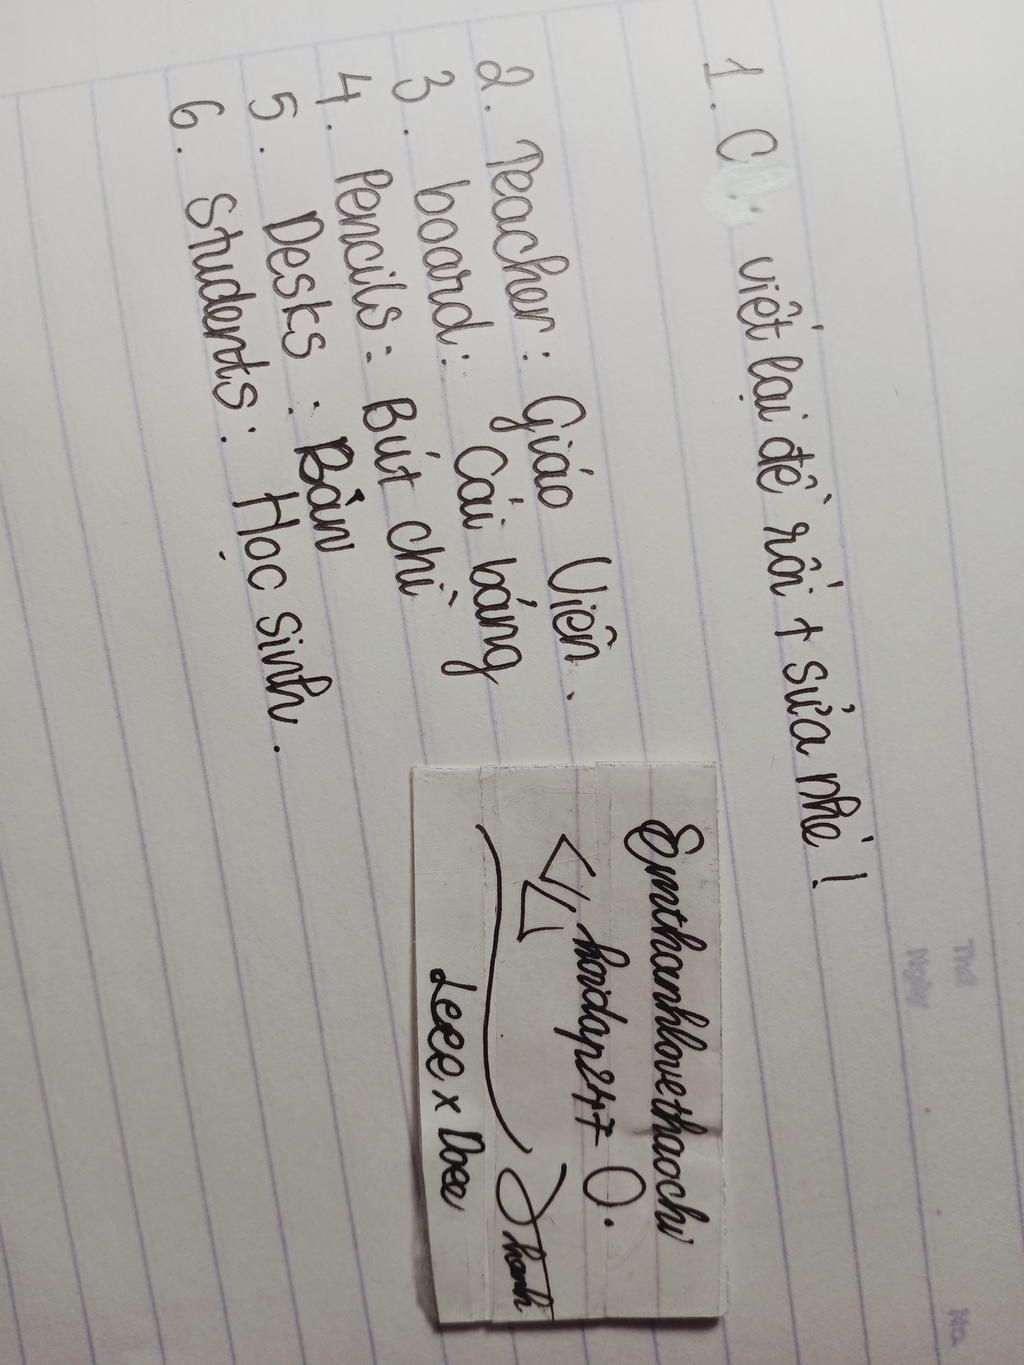 1. C viết lại đề rồi + sửa nhé !
2. Teacher : Giáo Viên .
3. board : Cái bảng
4. Pencils : Bút chì
5. Desks : Bàn
6. Students : Học sinh .
Emthanhlovethaochi
hoidap247
Thanh
Thứ
Ngày
No.